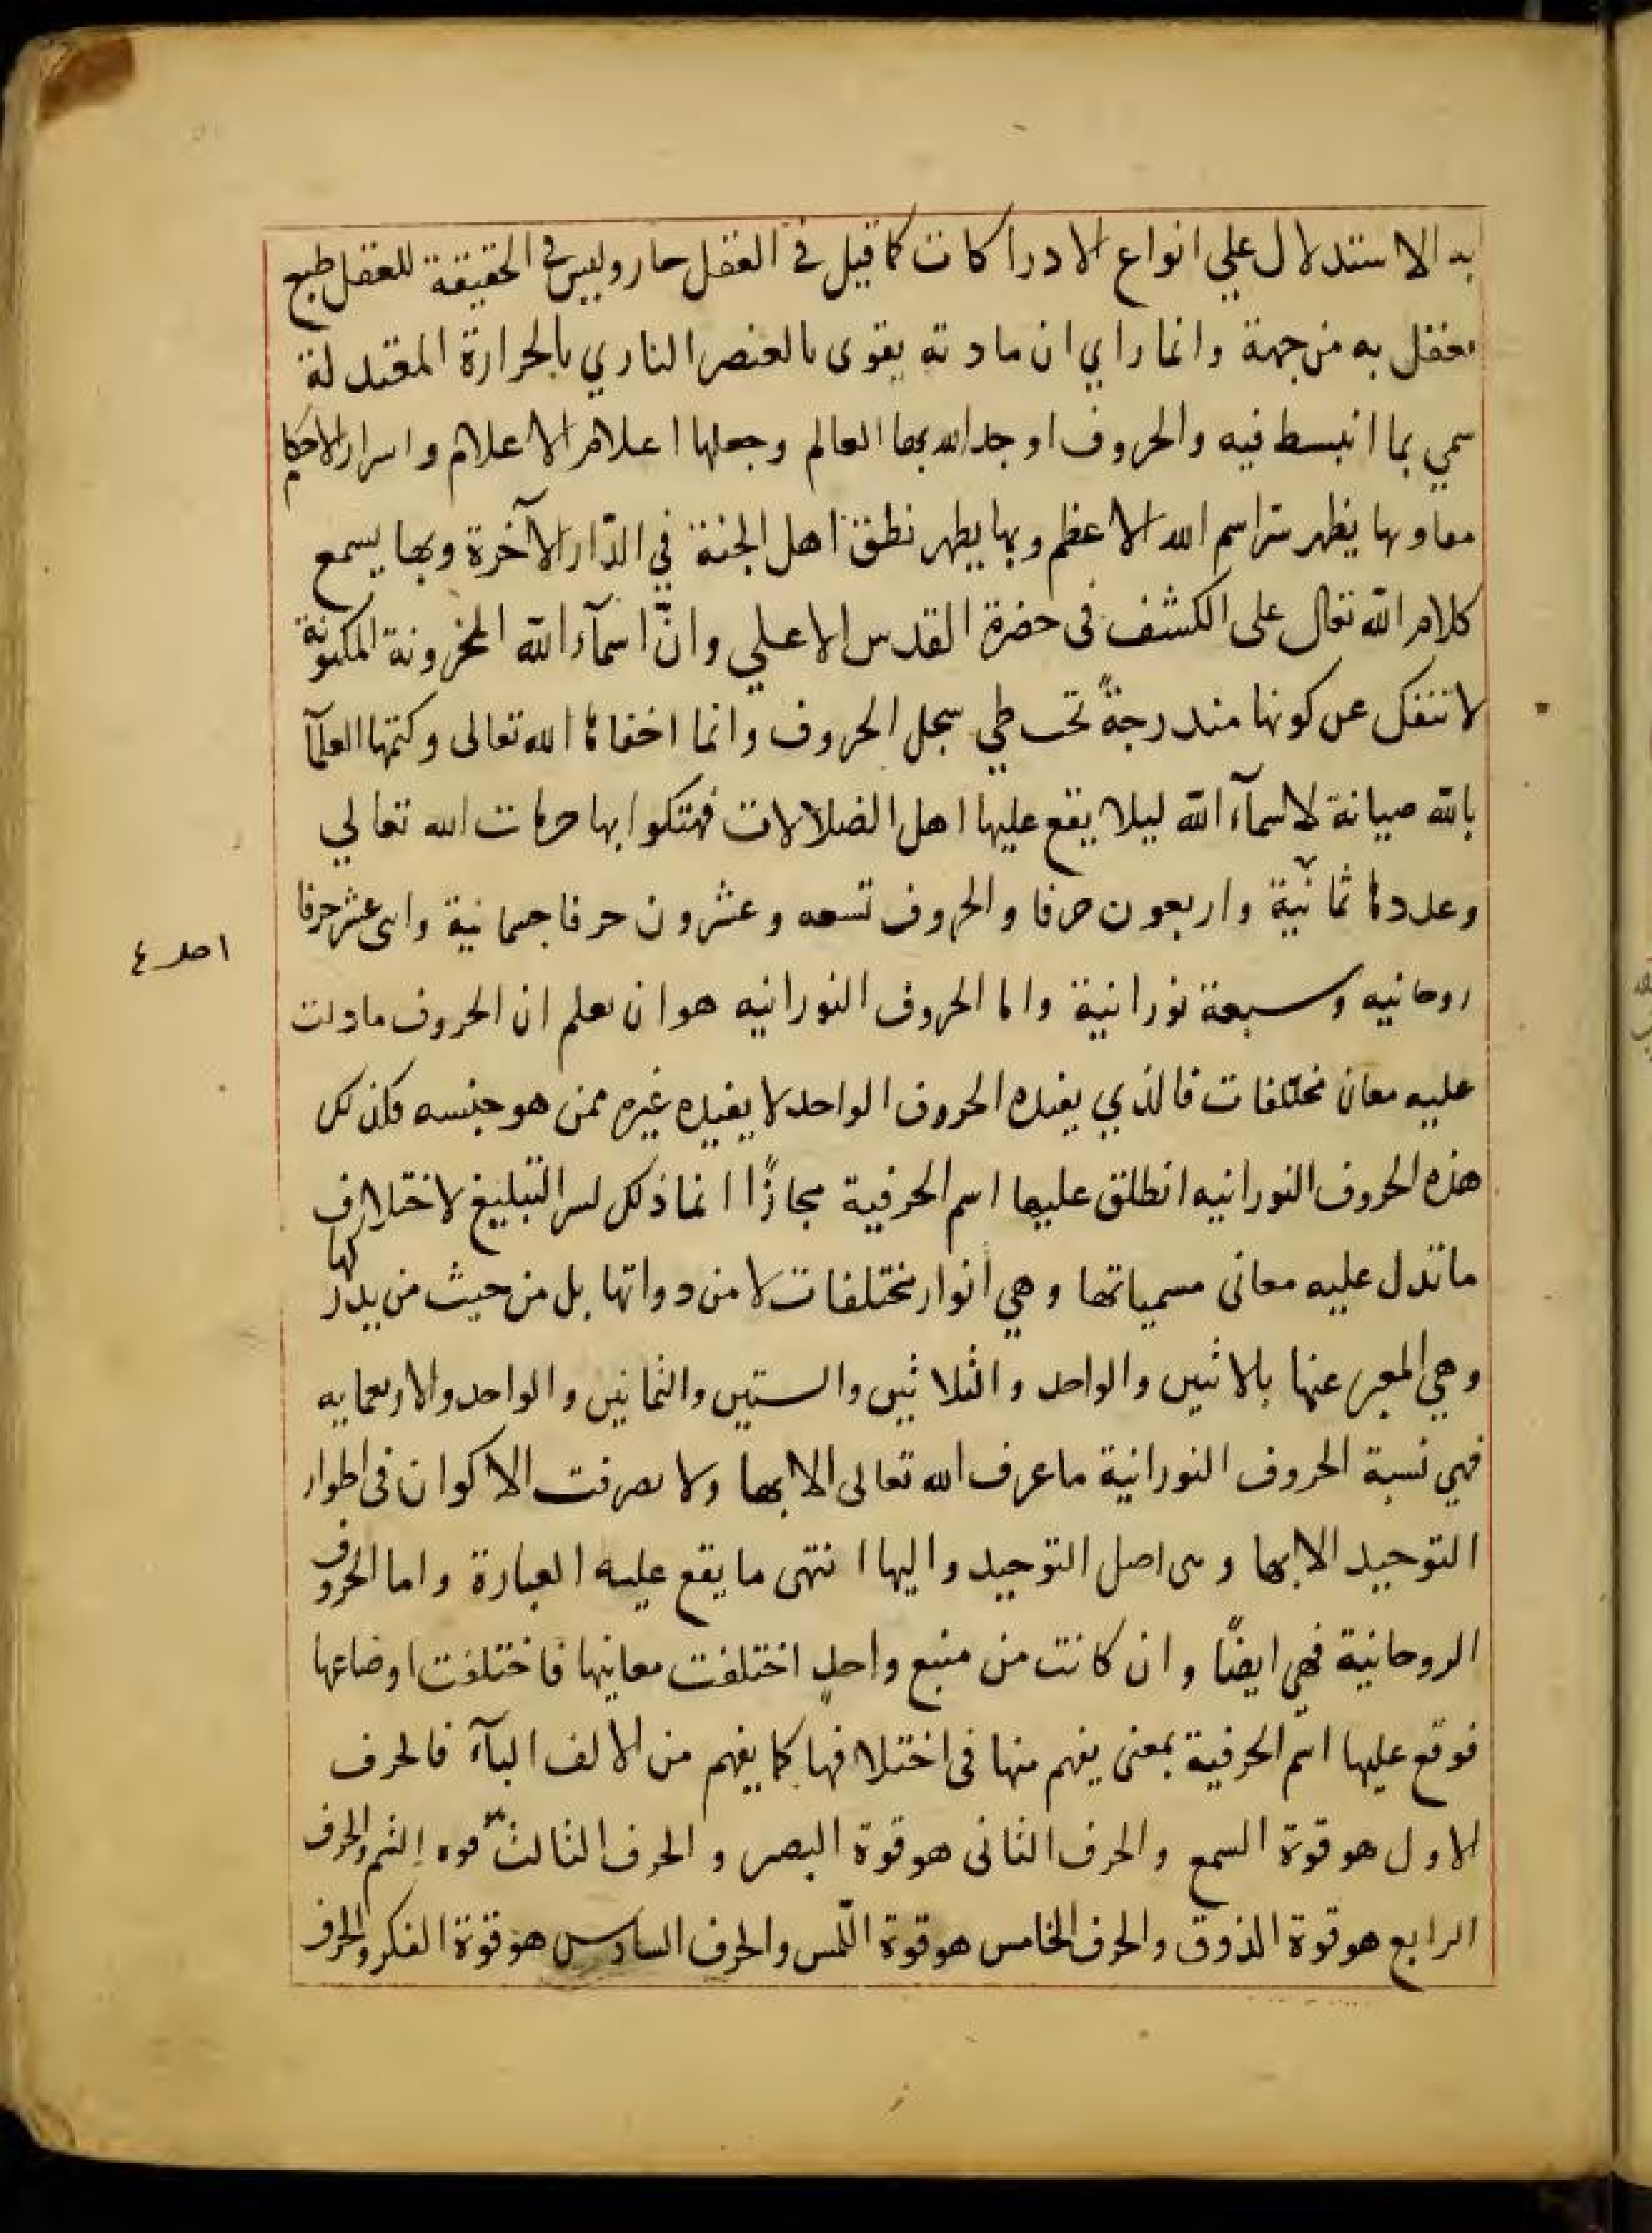 به الاستدلال علي انواع الادراكات كما قيل في العقل حار وليس في الحقيقة للعقل طبع
يعقل به من جهة وانما راي ان مادته يقوى بالعنصر الناري بالحرارة المعتدلة
سمي بما انبسط فيه والحروف اوجد الله بها العالم وجعلها اعلام الاعلام واسرار الاحكام
وبها يظهر سر اسم الله الاعظم وبها يظهر نطق اهل الجنة في الدّار الآخرة وبها يسمع
كلام الله تعالى على الكشف فى حضرة القدس الاعلي وانّ اسمآء الله المخزونة المكنونة
لا تنفك عن كونها مندرجةً تحت طي سجل الحروف وانما اخفاها الله تعالى وكتمها العلمآ
بالله صيانة لاسمآء الله ليلا يقع عليها اهل الضلالات فهتكوا بها حرمات الله تعالي
وعددها ثمانية واربعون حرفا والحروف تسعه وعشرون حرفا جسمانية واثنى عشر حرفا
احد ٤
روحانيه وسبعة نورانية واما الحروف النورانيه هو ان تعلم ان الحروف ما دلت
عليه معان مختلفات فالذي يفيده الحروف الواحد لا يفيده غيره ممن هو جنسه فكذلك
هذه الحروف النورانيه انطلق عليها اسم الحرفية مجازًا انما ذلك لسر التبليغ لاختلاف
ما تدل عليه معانى مسمياتها وهي انوار مختلفات لا من دواتها بل من حيث من يدركها
وهي المعبر عنها بالاثنين والواحد والثلاثين والستين والثمانين والواحد والاربعمايه
فهي نسبة الحروف النورانية ما عرف الله تعالى الا بها ولا تصرفت الاكوان فى اطوار
التوحيد الا بها وهى اصل التوحيد واليها انتهى ما يقع عليه العبارة واما الحروف
الروحانية فهي ايضًا وان كانت من منبع واحدٍ اختلفت معانيها فاختلفت اوضاعها
فوقع عليها اسم الحرفية بمعنى يفهم منها فى اختلافها كما يفهم من الالف البآء فالحرف
الاول هو قوة السمع والحرف الثانى هو قوة البصر والحرف الثالث قوه الشم والحرف
الرابع هو قوة الذوق والحرف الخامس هو قوة اللّمس والحرف السادس هو قوة الفكر والحرف